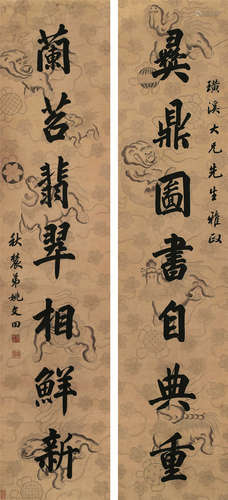 璜溪大兄先生雅政
彝鼎圖書自典重
蘭苕翡翠相鮮新
秋農弟姚文田